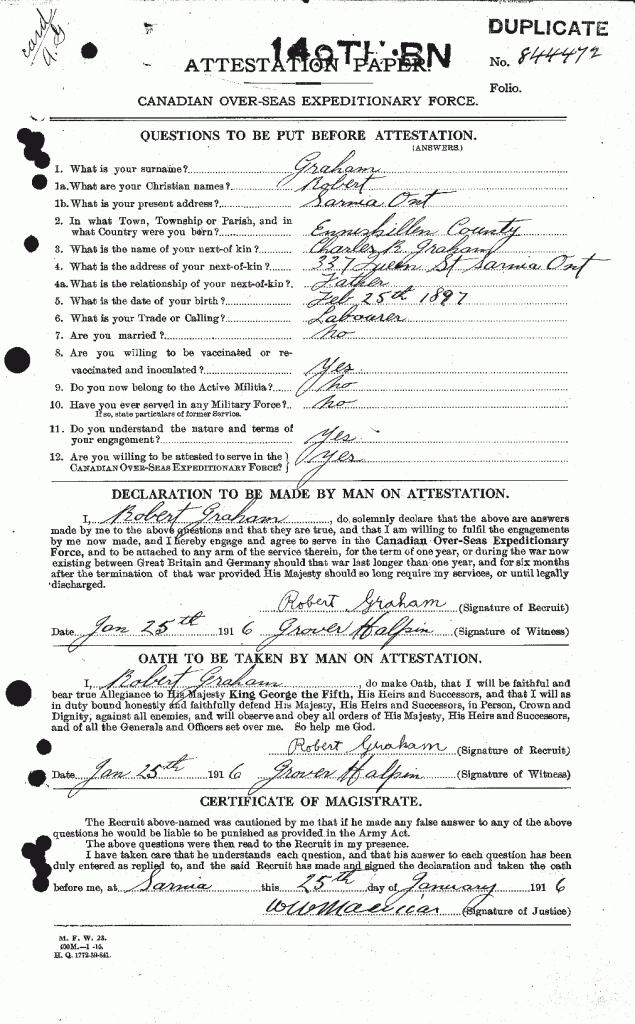 card
DUPLICATE
149TH BN
ATTESTATION PAPER.
No. 844472
Folio.
CANADIAN OVER-SEAS EXPEDITIONARY FORCE.
QUESTIONS TO BE PUT BEFORE ATTESTATION.
(ANSWERS.)
1. What is your surname? Graham
1a. What are your Christian names? Robert
1b. What is your present address? Sarnia Ont
2. In what Town, Township or Parish, and in
what Country were you born? Enniskillen County
3. What is the name of your next-of kin? Charles B. Graham
4. What is the address of your next-of-kin? 337 Queen St Sarnia Ont
4a. What is the relationship of your next-of-kin? Father
5. What is the date of your birth? Feb 25th 1897
6. What is your Trade or Calling? Labourer
7. Are you married? No
8. Are you willing to be vaccinated or re-
vaccinated and inoculated? Yes
9. Do you now belong to the Active Militia? No
10. Have you ever served in any Military Force? No
If so, state particulars of former Service.
11. Do you understand the nature and terms of
your engagement? Yes
12. Are you willing to be attested to serve in the
CANADIAN OVER-SEAS EXPEDITIONARY FORCE? Yes
DECLARATION TO BE MADE BY MAN ON ATTESTATION.
I, Robert Graham, do solemnly declare that the above are answers
made by me to the above questions and that they are true, and that I am willing to fulfil the engagements
by me now made, and I hereby engage and agree to serve in the Canadian Over-Seas Expeditionary
Force, and to be attached to any arm of the service therein, for the term of one year, or during the war now
existing between Great Britain and Germany should that war last longer than one year, and for six months
after the termination of that war provided His Majesty should so long require my services, or until legally
discharged.
Robert Graham (Signature of Recruit)
Date Jan 25th 1916 Grover Halpin (Signature of Witness)
OATH TO BE TAKEN BY MAN ON ATTESTATION.
I, Robert Graham, do make Oath, that I will be faithful and
bear true Allegiance to His Majesty King George the Fifth, His Heirs and Successors, and that I will as
in duty bound honestly and faithfully defend His Majesty, His Heirs and Successors, in Person, Crown and
Dignity, against all enemies, and will observe and obey all orders of His Majesty, His Heirs and Successors,
and of all the Generals and Officers set over me. So help me God.
Robert Graham (Signature of Recruit)
Date Jan 25th 1916 Grover Halpin (Signature of Witness)
CERTIFICATE OF MAGISTRATE.
The Recruit above-named was cautioned by me that if he made any false answer to any of the above
questions he would be liable to be punished as provided in the Army Act.
The above questions were then read to the Recruit in my presence.
I have taken care that he understands each question, and that his answer to each question has been
duly entered as replied to, and the said Recruit has made and signed the declaration and taken the oath
before me, at Sarnia this 25th day of January 1916
(Signature of Justice)
M. F. W. 23.
H. Q. 1772-39-841.